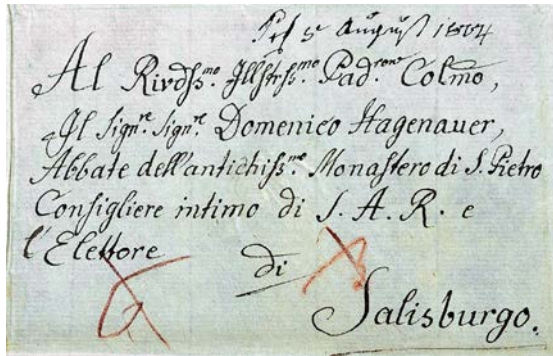 5 August 1804
Al Rivdss.mo Illstrss.mo Pad.rone Colmo,
Al Sign.re Sign.re Domenico Hagenauer,
Abbate dell'antichiss.mo Monastero di S. Pietro
Consigliere intimo di S. A. R. e
l'Elettore
di
Salisburgo.